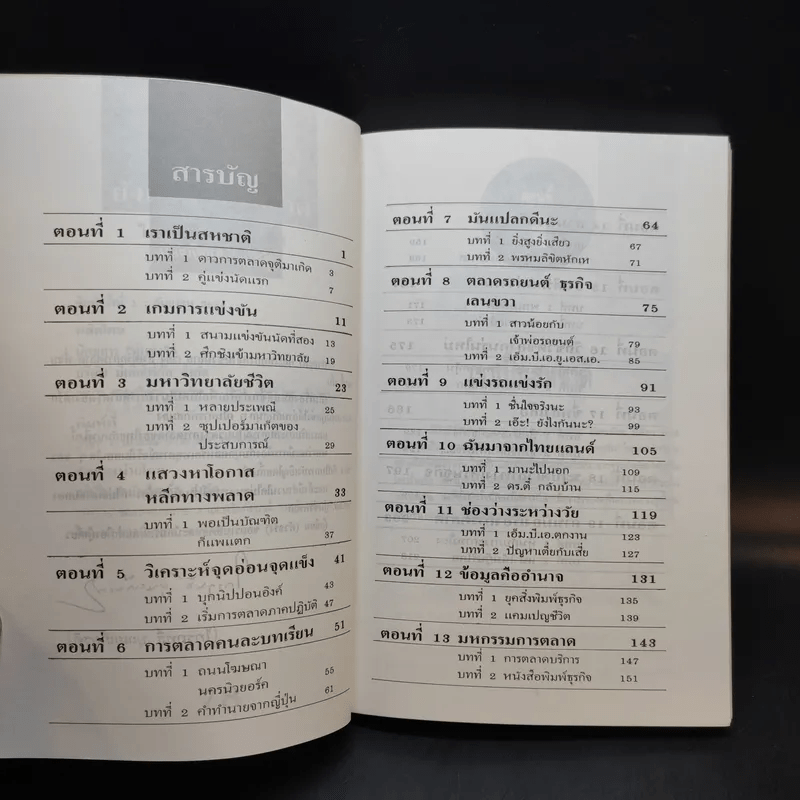 สารบัญ
ตอนที่ 1 เราเป็นสหชาติ 1
บทที่ 1 ดาวการตลาดจุติมาเกิด 3
บทที่ 2 คู่แข่งนัดแรก 7
ตอนที่ 2 เกมการแข่งขัน 11
บทที่ 1 สนามแข่งขันนัดที่สอง 13
บทที่ 2 ศึกชิงเข้ามหาวิทยาลัย 19
ตอนที่ 3 มหาวิทยาลัยชีวิต 23
บทที่ 1 หลายประเพณี 25
บทที่ 2 ซุปเปอร์มาเก็ตของ
ประสบการณ์ 29
ตอนที่ 4 แสวงหาโอกาส
หลีกทางพลาด 33
บทที่ 1 พอเป็นบัณฑิต
ก็แพแตก 37
ตอนที่ 5 วิเคราะห์จุดอ่อนจุดแข็ง 41
บทที่ 1 บุกนิปปอนอิงค์ 43
บทที่ 2 เริ่มการตลาดภาคปฏิบัติ 47
ตอนที่ 6 การตลาดคนละบทเรียน 51
บทที่ 1 ถนนโฆษณา
นครนิวยอร์ค 55
บทที่ 2 คำทำนายจากญี่ปุ่น 61
ตอนที่ 7 มันแปลกดีนะ 64
บทที่ 1 ยิ่งสูงยิ่งเสียว 67
บทที่ 2 พรหมลิขิตหักเห 71
ตอนที่ 8 ตลาดรถยนต์ ธุรกิจ
เลนขวา 75
บทที่ 1 สาวน้อยกับ
เจ้าพ่อรถยนต์ 79
บทที่ 2 เอ็ม.บี.เอ.ยู.เอส.เอ. 85
ตอนที่ 9 แข่งรถแข่งรัก 91
บทที่ 1 ชื่นใจจริงนะ 93
บทที่ 2 เอ๊ะ! ยังไงกันนะ? 99
ตอนที่ 10 ฉันมาจากไทยแลนด์ 105
บทที่ 1 มานะไปนอก 109
บทที่ 2 ดร.ตี๋ กลับบ้าน 115
ตอนที่ 11 ช่องว่างระหว่างวัย 119
บทที่ 1 เอ็ม.บี.เอ.ตกงาน 123
บทที่ 2 ปัญหาเตี่ยกับเสี่ย 127
ตอนที่ 12 ข้อมูลคืออำนาจ 131
บทที่ 1 ยุคสิ่งพิมพ์ธุรกิจ 135
บทที่ 2 แคมเปญชีวิต 139
ตอนที่ 13 มหกรรมการตลาด 143
บทที่ 1 การตลาดบริการ 147
บทที่ 2 หนังสือพิมพ์ธุรกิจ 151